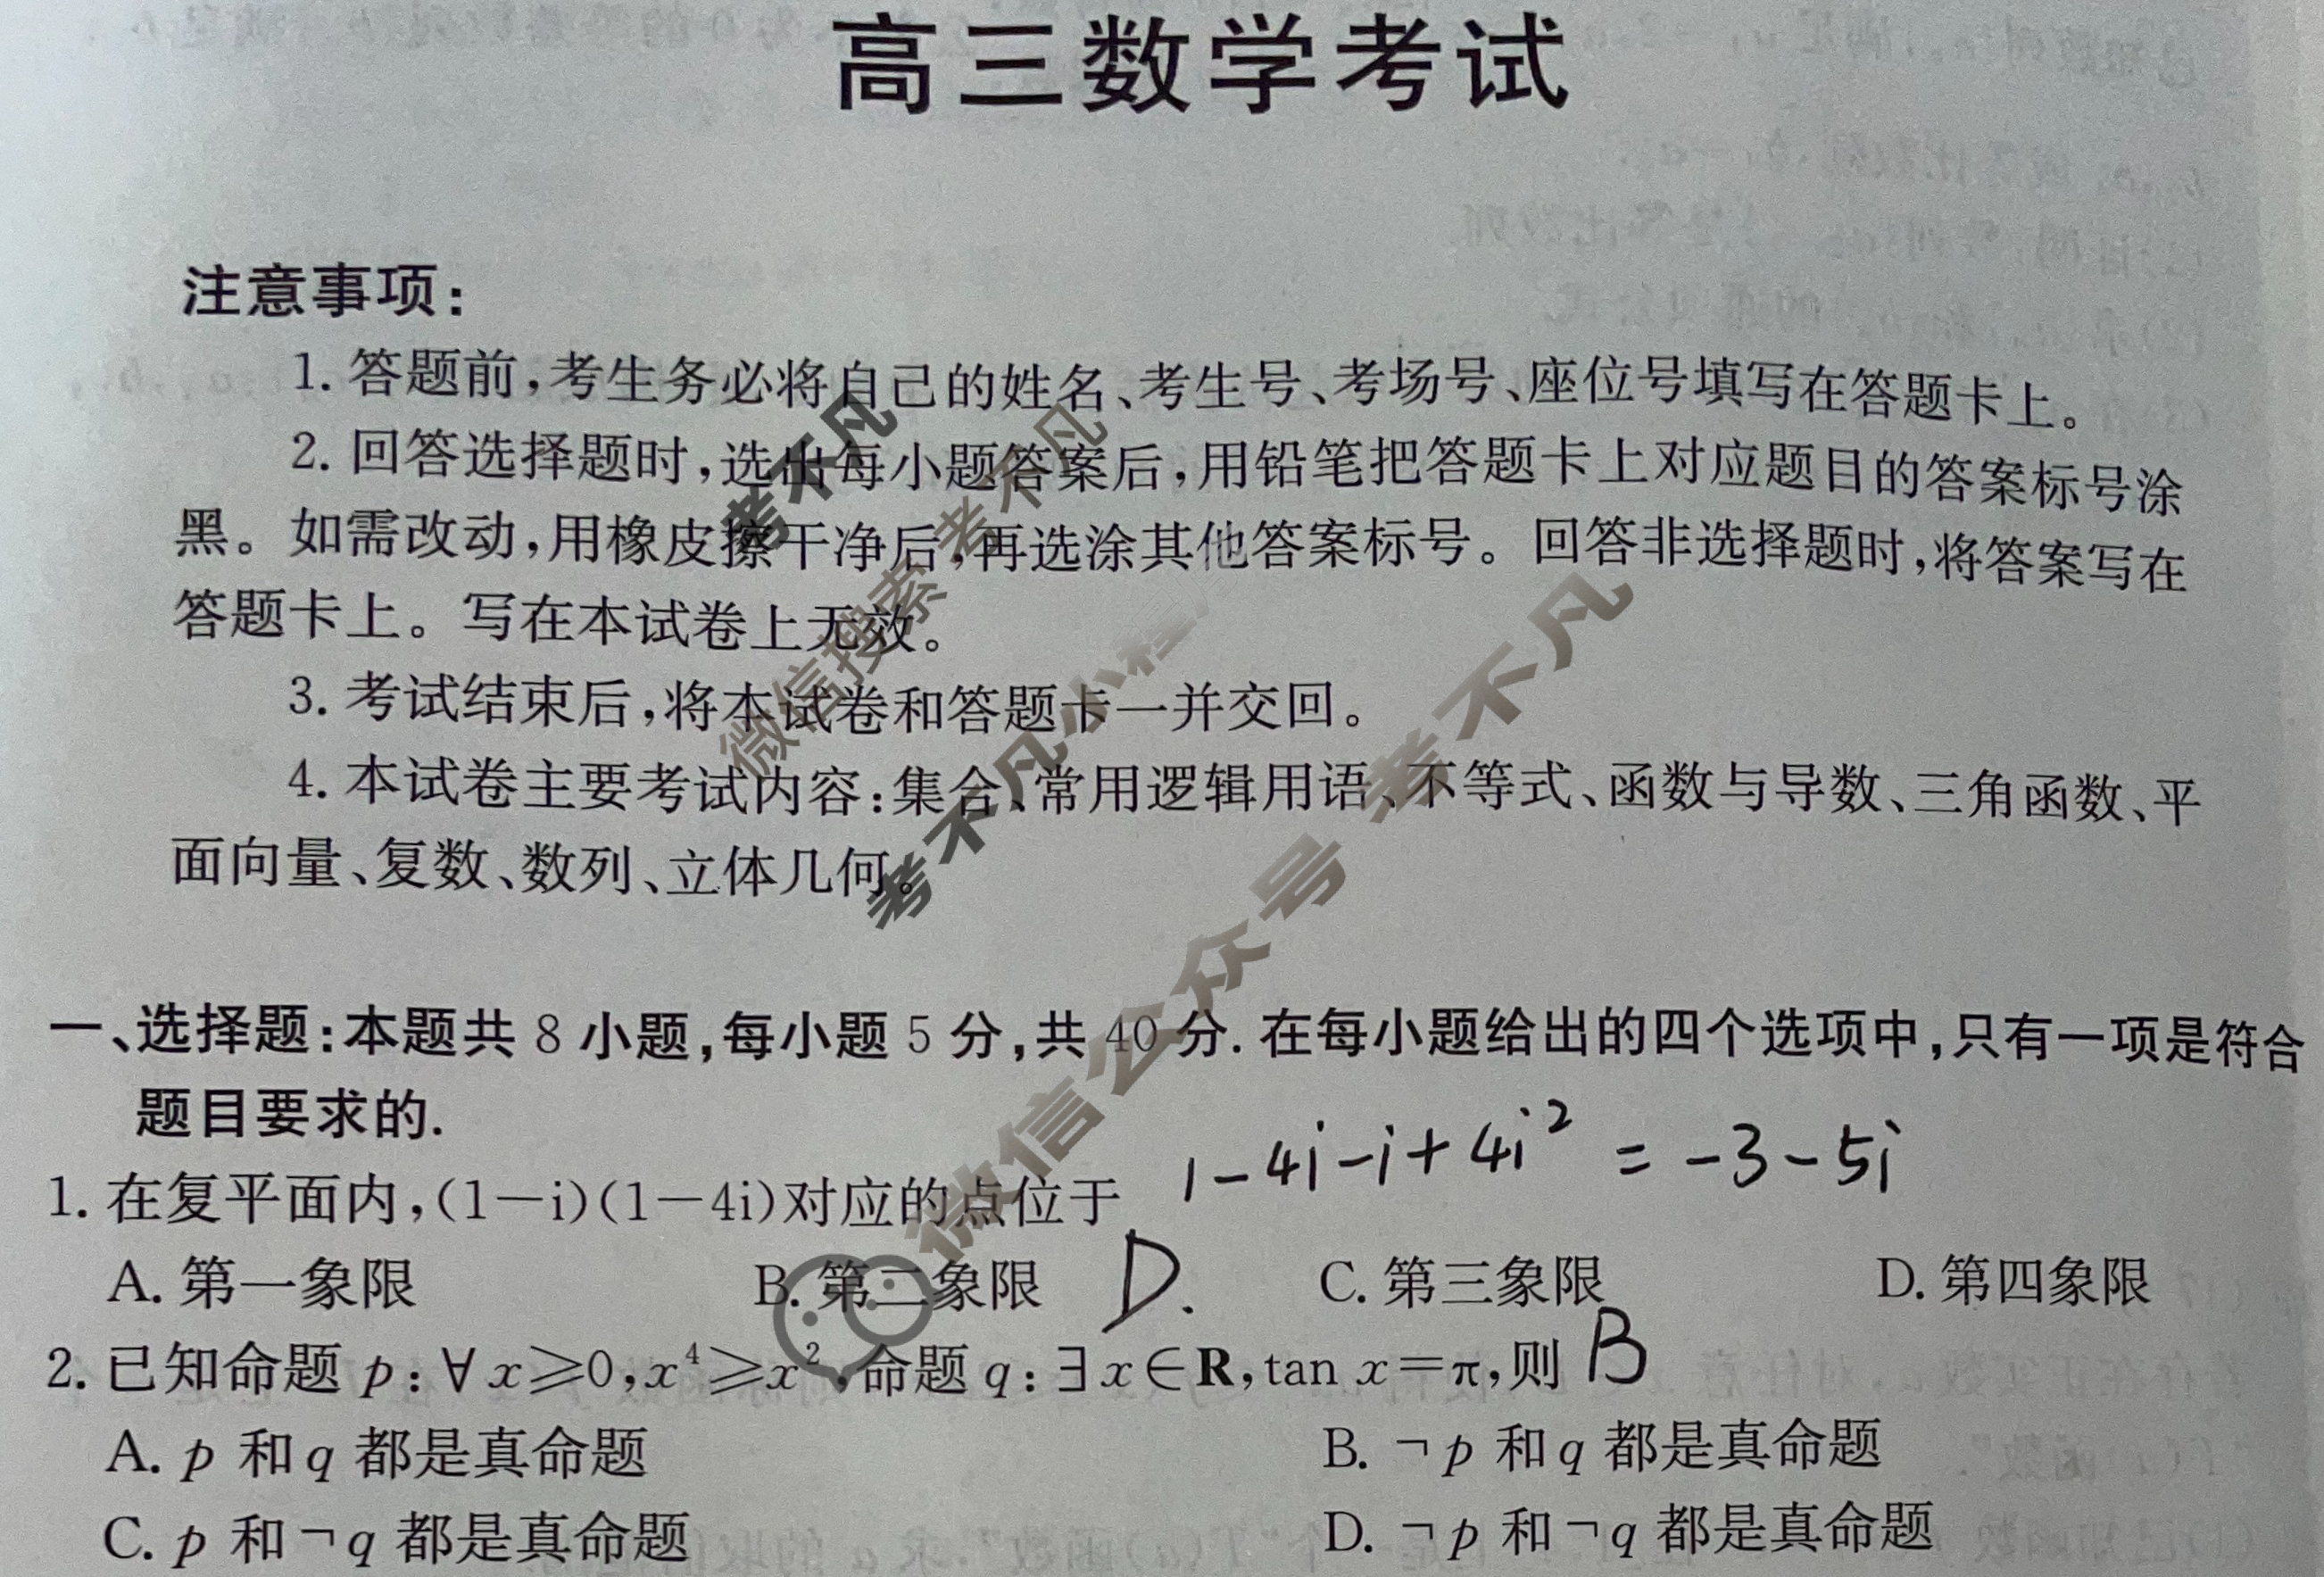 高三数学考试
注意事项:
1. 答题前,考生务必将自己的姓名、考生号、考场号、座位号填写在答题卡上。
2. 回答选择题时,选出每小题答案后,用铅笔把答题卡上对应题目的答案标号涂
黑。如需改动,用橡皮擦干净后,再选涂其他答案标号。回答非选择题时,将答案写在
答题卡上。写在本试卷上无效。
3. 考试结束后,将本试卷和答题卡一并交回。
4. 本试卷主要考试内容:集合、常用逻辑用语、不等式、函数与导数、三角函数、平
面向量、复数、数列、立体几何。
考不凡
微信搜索 考不凡
考不凡小程
微信公众号 考不凡
一、选择题:本题共 8 小题,每小题 5 分,共 40 分. 在每小题给出的四个选项中,只有一项是符合
题目要求的.
1-4i-i+4i² = -3-5i
1. 在复平面内,(1-i)(1-4i)对应的点位于
A. 第一象限 B. 第二象限 D. C. 第三象限 D. 第四象限
2. 已知命题 p:∀x≥0,x⁴≥x²,命题 q:∃x∈R,tan x=π,则 B
A. p 和 q 都是真命题 B. ¬p 和 q 都是真命题
C. p 和 ¬q 都是真命题 D. ¬p 和 ¬q 都是真命题